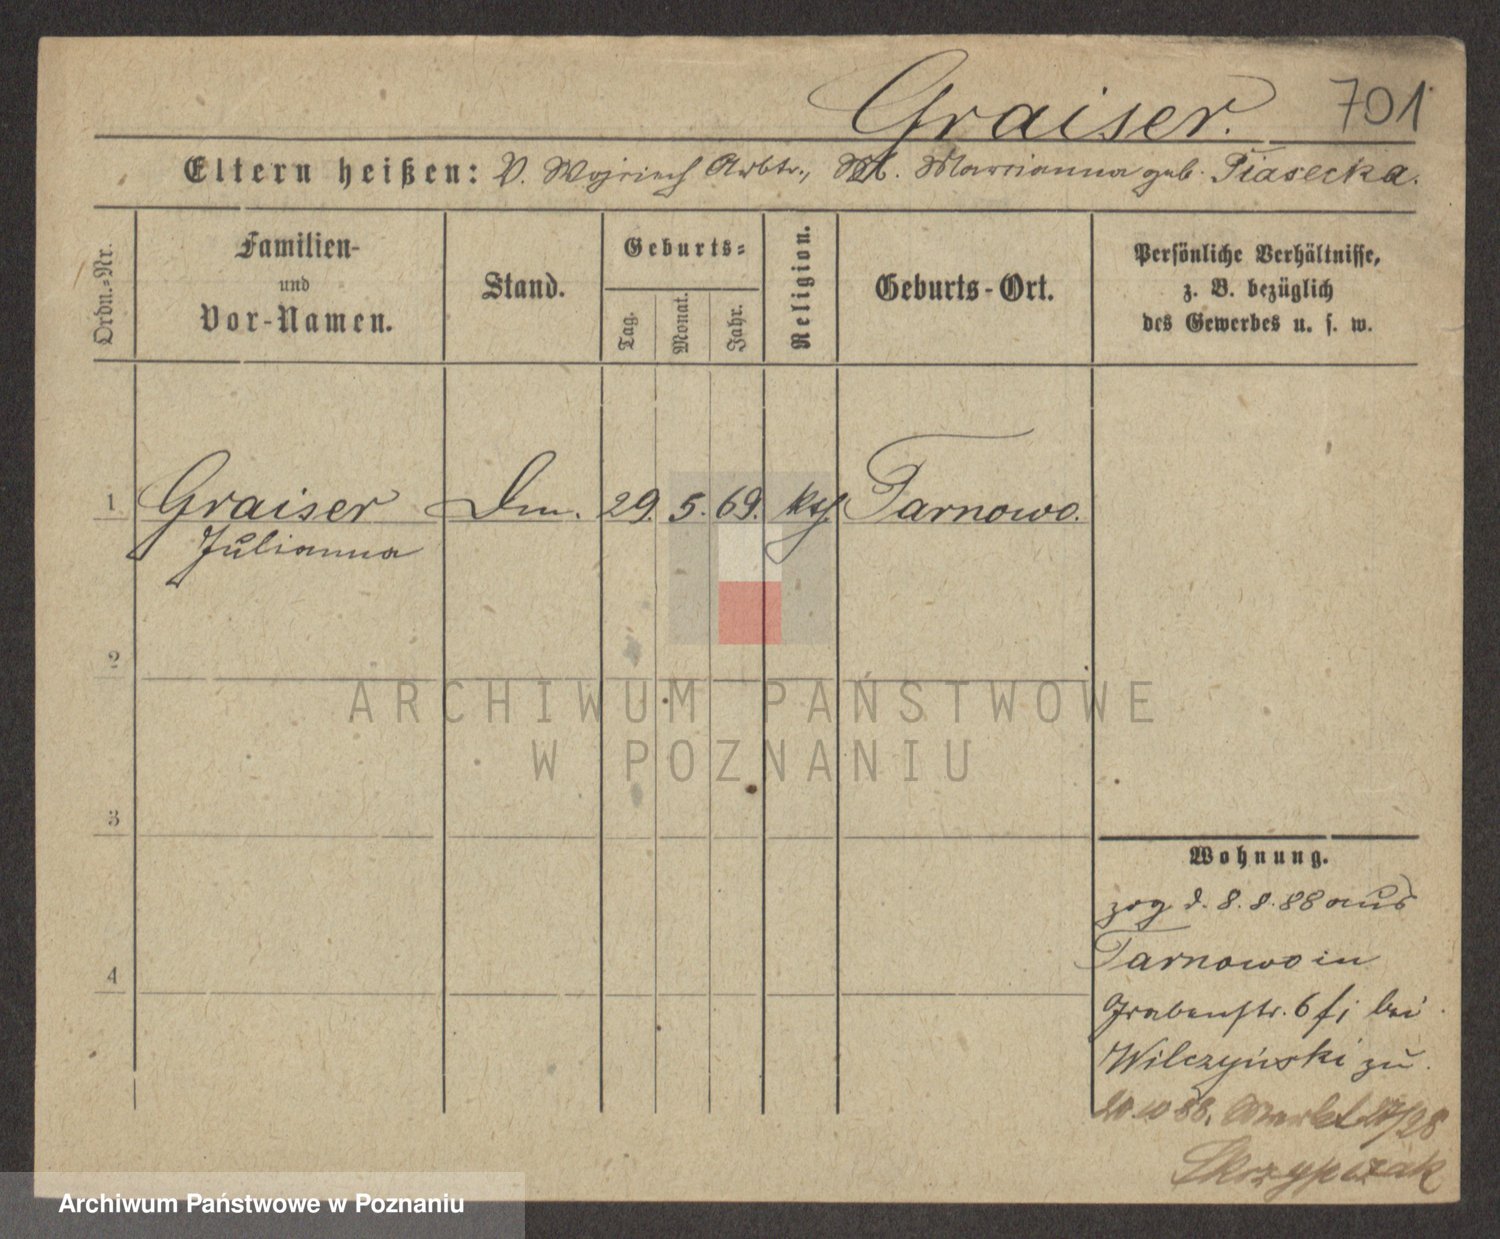 Graiser. 701
Eltern heißen: V. Wojciech Arbtr., M. Marrianna geb. Piasecka.
Ordn.-Nr.
Familien-
und
Vor-Namen.
Stand.
Geburts-
Tag.
Monat.
Jahr.
Religion.
Geburts-Ort.
Persönliche Verhältnisse,
z. B. bezüglich
des Gewerbes u. s. w.
1 Graiser Dm. 29. 5. 69. kth. Tarnowo.
Julianna
2
3
4
Wohnung.
zog d. 8.8.88 aus
Tarnowo in
Grabenstr. 6 bei
Wilczyński zu
20.10 88. Markt 27/28
Skrzypczak
ARCHIWUM PAŃSTWOWE
W POZNANIU
Archiwum Państwowe w Poznaniu